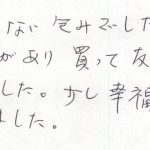 ない包みでした
があり買って友
した。少し幸福
した。